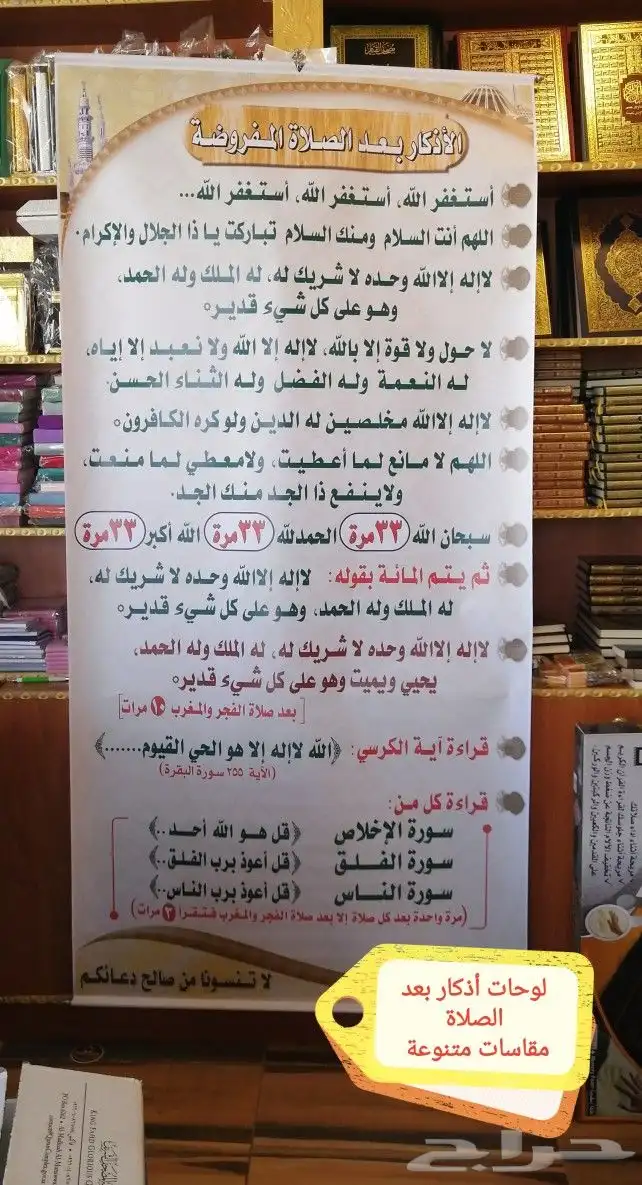 الأذكار بعد الصلاة المفروضة
أستغفر الله، أستغفر الله، أستغفر الله...
اللهم أنت السلام ومنك السلام تباركت يا ذا الجلال والإكرام.
لاإله إلاالله وحده لا شريك له، له الملك وله الحمد،
وهو على كل شيء قدير.
لا حول ولا قوة إلا بالله، لاإله إلا الله ولا نعبد إلا إياه،
له النعمة وله الفضل وله الثناء الحسن.
لاإله إلاالله مخلصين له الدين ولو كره الكافرون.
اللهم لا مانع لما أعطيت، ولامعطي لما منعت،
ولاينفع ذا الجد منك الجد.
سبحان الله ٣٣ مرة الحمدلله ٣٣ مرة الله أكبر ٣٣ مرة
ثم يتم المائة بقوله: لاإله إلاالله وحده لا شريك له،
له الملك وله الحمد، وهو على كل شيء قدير.
لاإله إلاالله وحده لا شريك له، له الملك وله الحمد،
يحيي ويميت وهو على كل شيء قدير.
[بعد صلاة الفجر والمغرب ١٠ مرات]
قراءة آية الكرسي: ﴿الله لاإله إلا هو الحي القيوم.......﴾
(الآية ٢٥٥ سورة البقرة)
قراءة كل من:
سورة الإخلاص ﴿قل هو الله أحد..﴾
سورة الفلق ﴿قل أعوذ برب الفلق..﴾
سورة الناس ﴿قل أعوذ برب الناس..﴾
(مرة واحدة بعد كل صلاة إلا بعد صلاة الفجر والمغرب فتقرأ ٣ مرات)
لا تنسونا من صالح دعائكم
لوحات أذكار بعد
الصلاة
مقاسات متنوعة
حراج